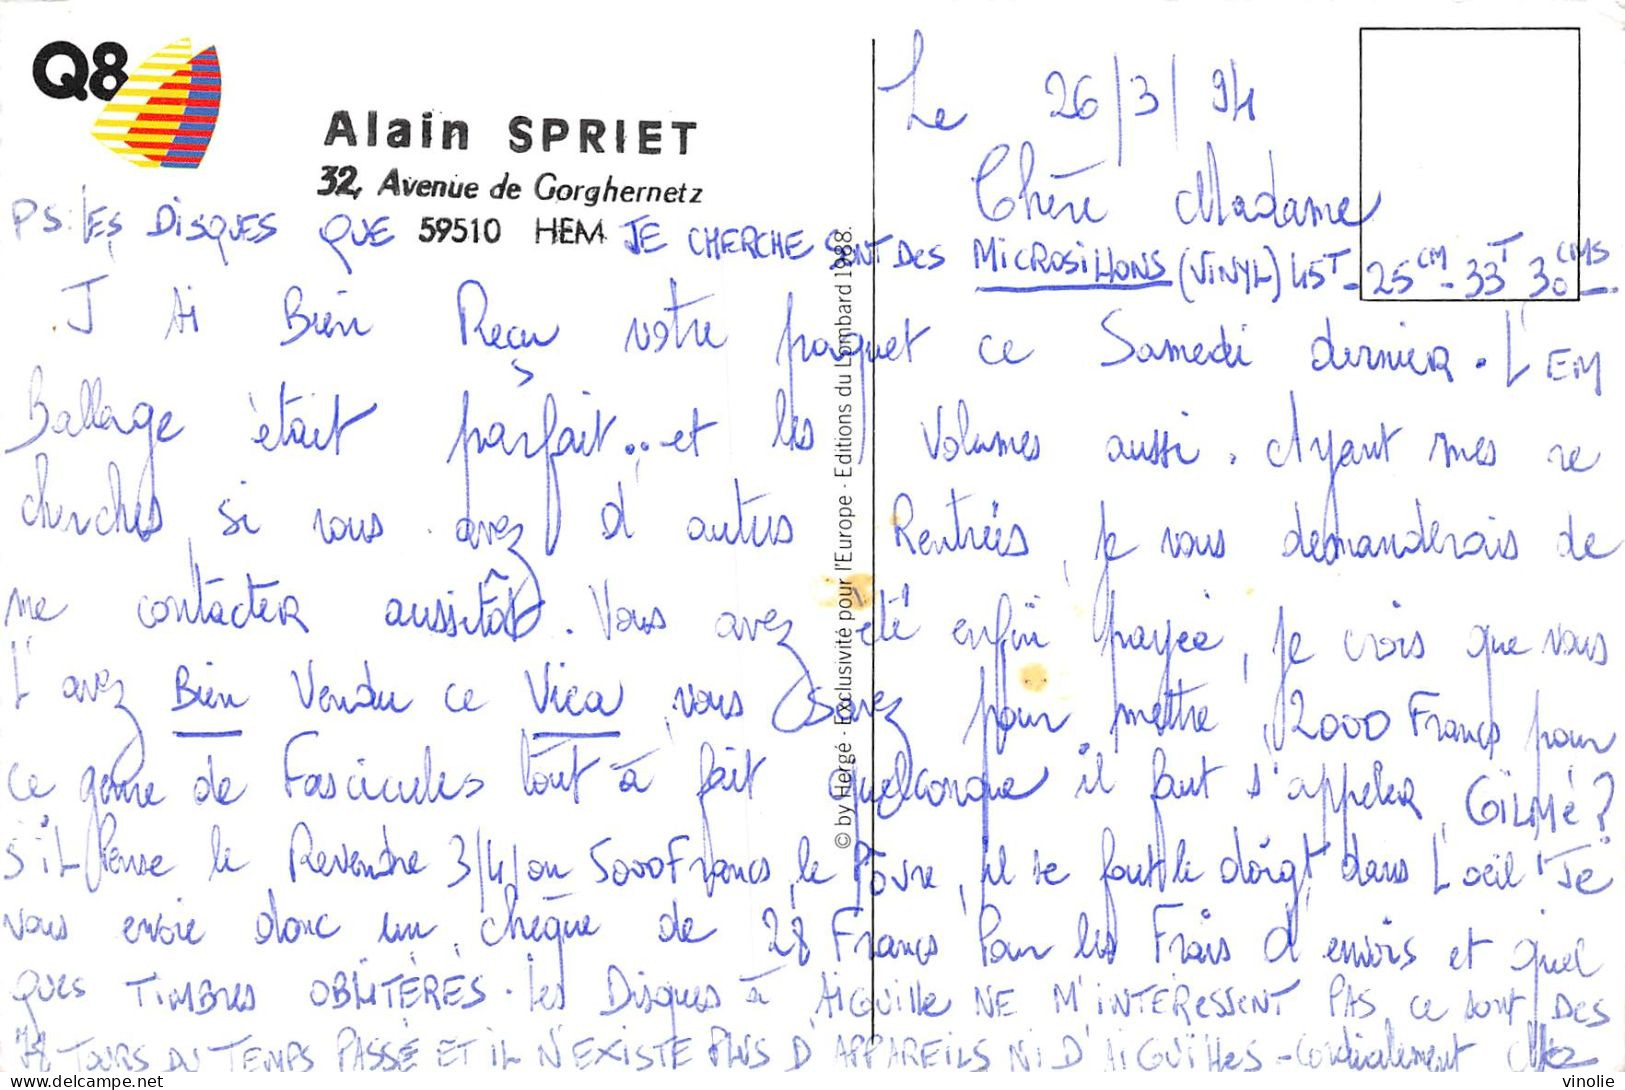 Q8
Alain SPRIET
32, Avenue de Gorghernetz
59510 HEM
Le 26/3/94
Chère Madame
PS: LES DISQUES QUE JE CHERCHE SONT DES MICROSILLONS (VINYL) 45T - 25CM - 33T 30CMS
J Ai Bien Reçu votre paquet ce Samedi dernier. L'EM
Ballage était parfait... et les Volumes aussi. Ayant mes re
cherches si vous avez d'autres Rentrées, je vous demanderais de
me contacter aussitôt. Vous avez été enfin payée, je crois que vous
l'avez Bien Vendu ce Vica, vous savez pour mettre 2000 Francs pour
ce genre de Fascicules tout à fait quelconque il faut s'appeler GÏLMé?
S'iL Pense le Revendre 3/4/ou 5000 Francs, le Pôvre, il se fout le doigt dans L'oeil! Je
vous envoie donc un chèque de 28 Francs Pour les Frais d'envois et quel
ques TIMBRES OBLITÉRÉS. Les Disques à AiGUille NE M'INTÉRESSENT PAS, ce sont DES
78 TOURS DU TEMPS PASSÉ ET iL N'EXISTE PLUS D'APPAREILS Ni D'AiGUilles - Cordialement
© by Hergé - Exclusivité pour l'Europe - Editions du Lombard 1988.
vinolie